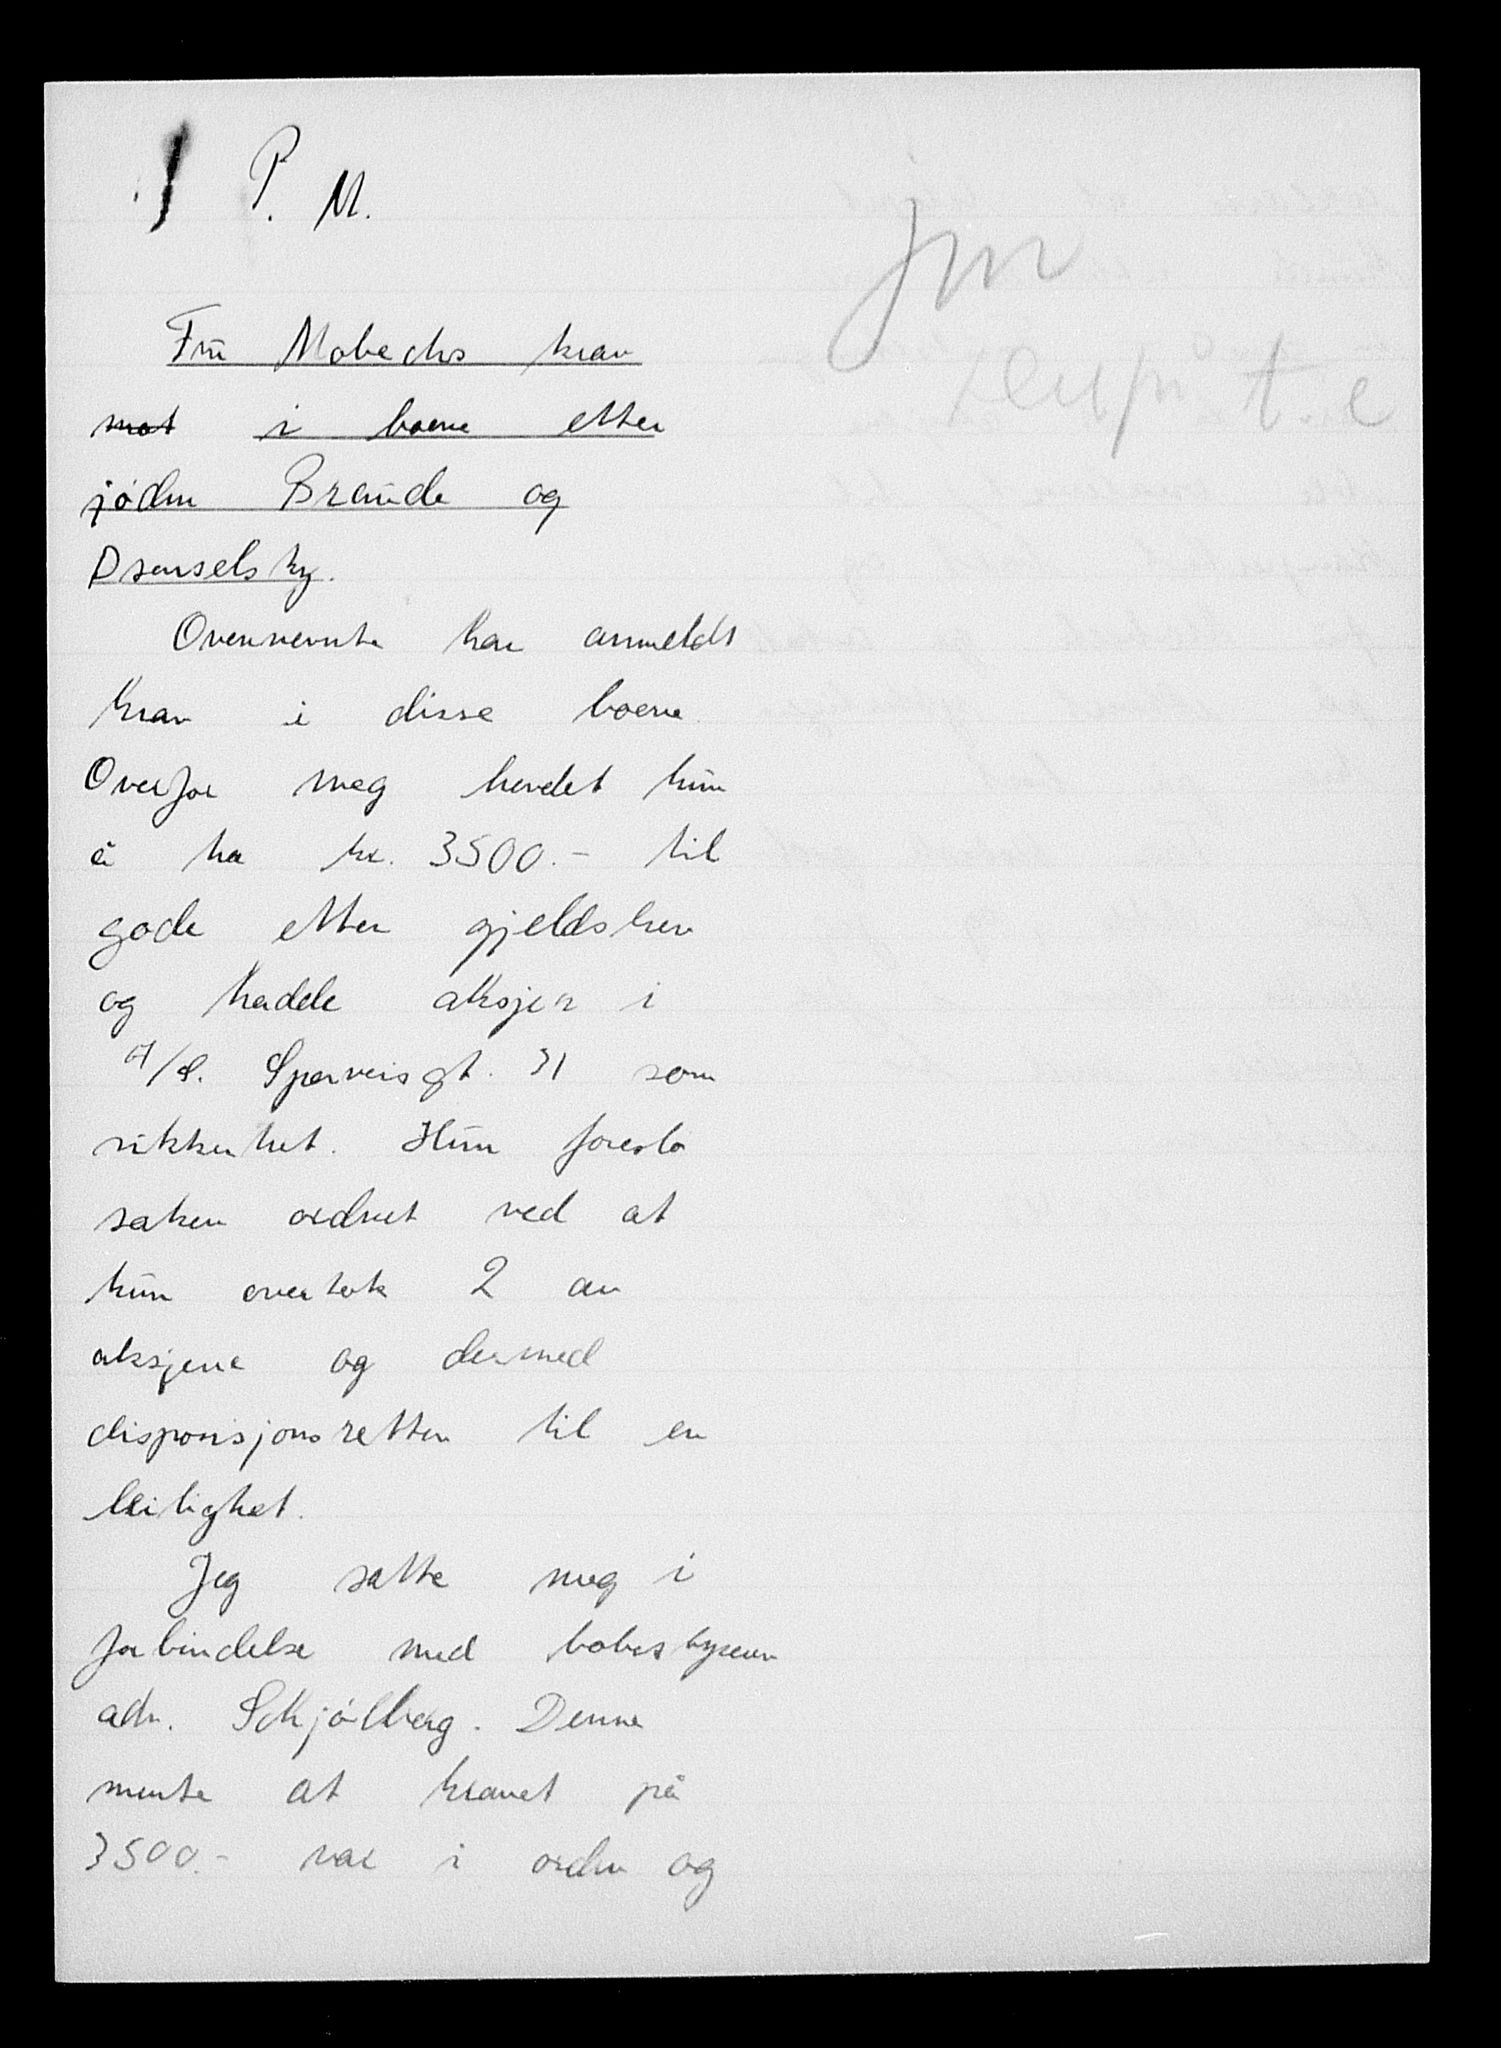 P. M.
jm
t.e
Frü Mobechs krav
mot i boene etter
jøden Braude og
Dsenselsky.
Ovennevnte har anmeldt
krav i disse boene
Overfor meg hevdet hün
å ha kr. 3500.- til
gode etter gjeldsbrev
og hadde aksjer i
A/S. Sporveisgt. 31 som
sikkerhet. Hün foreslo
saken ordnet ved at
hün overtok 2 av
aksjene og dermed
disposisjonsretten til en
leilighet.
Jeg satte meg i
forbindelse med bobestyreren
adv. Schjölberg. Denne
mente at kravet på
3500.- var i orden og